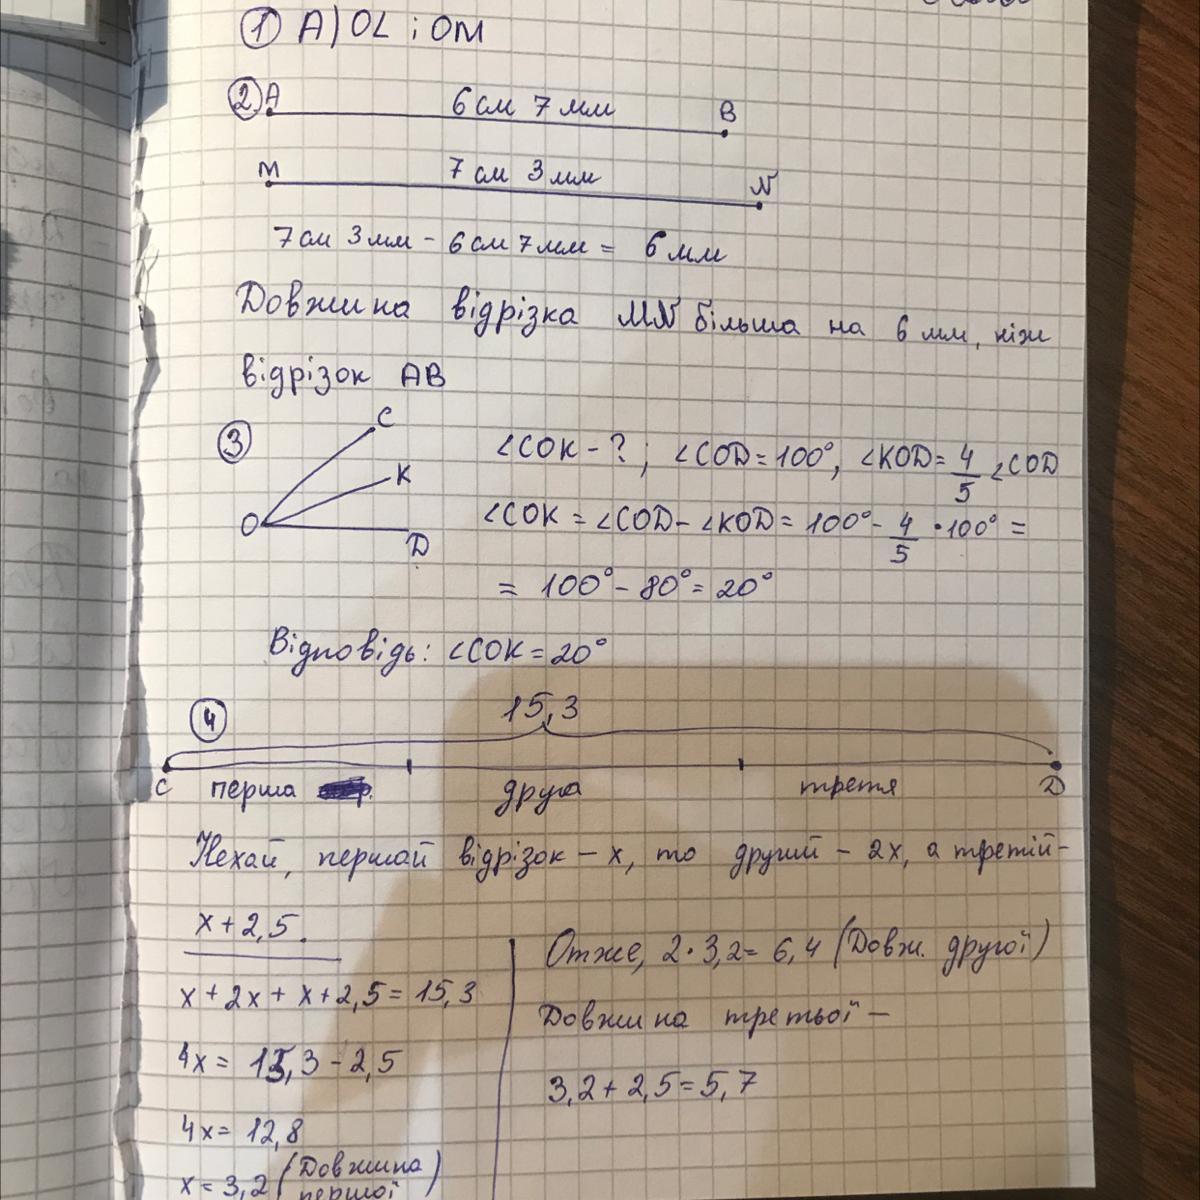 1 А) OL і OM
2 A 6 см 7 мм B
M 7 см 3 мм N
7 см 3 мм - 6 см 7 мм = 6 мм
Довжина відрізка MN більша на 6 мм, ніж
відрізок AB
3 C K O D
∠COK - ? ; ∠COD = 100°, ∠KOD = 4/5 ∠COD
∠COK = ∠COD - ∠KOD = 100° - 4/5 · 100° =
= 100° - 80° = 20°
Відповідь: ∠COK = 20°
4 15,3
C перша друга третя D
Нехай, перший відрізок - x, то другий - 2x, а третій -
x + 2,5.
x + 2x + x + 2,5 = 15,3
4x = 15,3 - 2,5
4x = 12,8
x = 3,2 (Довжина
першої)
Отже, 2 · 3,2 = 6,4 (Довж. другої)
Довжина третьої -
3,2 + 2,5 = 5,7